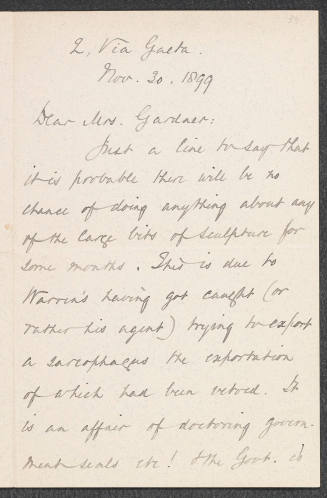 2, Via Gaeta.
Nov. 20. 1899
Dear Mrs. Gardner:
Just a line to say that
it is probable there will be no
chance of doing anything about any
of the large bits of sculpture for
some months. This is due to
Warren's having got caught (or
rather his agent) trying to export
a sarcophagus the exportation
of which had been vetoed. It
is an affair of doctoring govern-
ment seals etc! & the Govt. is